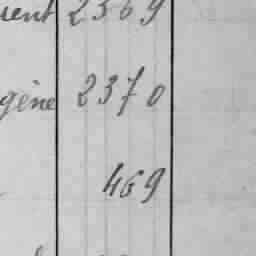 2369
gène 2370
469